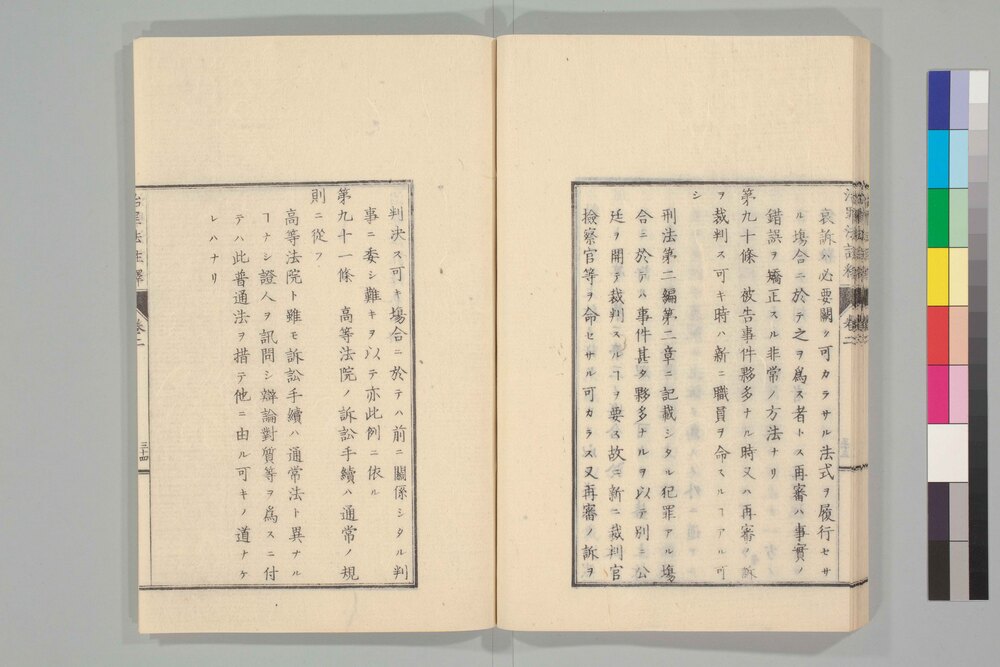 哀訴ハ必要闕ク可カラサル法式ヲ履行セサ
ル塲合ニ於テ之ヲ爲ス者トス再審ハ事實ノ
錯誤ヲ矯正スル非常ノ方法ナリ
第九十條 被告事件夥多ナル時又ハ再審ノ訴
ヲ裁判ス可キ時ハ新ニ職員ヲ命スルヿアル可
シ
刑法第二編第二章ニ記載シタル犯罪アル塲
合ニ於テハ事件甚タ夥多ナルヲ以テ別ニ公
廷ヲ開テ裁判スルヿヲ要ス故ニ新ニ裁判官
撿察官等ヲ命セサル可カラス又再審ノ訴ヲ
判決ス可キ塲合ニ於テハ前ニ關係シタル判
事ニ委シ難キヲ以テ亦此例ニ依ル
第九十一條 高等法院ノ訴訟手續ハ通常ノ規
則ニ從フ
高等法院ト雖モ訴訟手續ハ通常法ト異ナル
ヿナシ證人ヲ訊問シ辯論對質等ヲ爲スニ付
テハ此普通法ヲ措テ他ニ由ル可キノ道ナケ
レハナリ
卷二
三十四